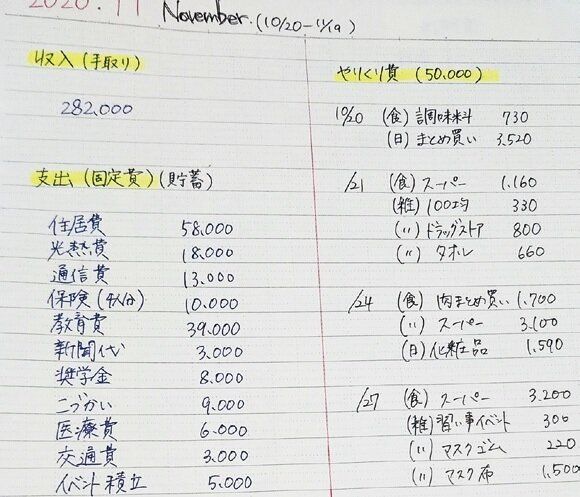 2020.11 November.(10/20-11/19)
収入(手取り)
282,000
支出(固定費)(貯蓄)
住居費 58.000
光熱費 18.000
通信費 13.000
保険(4人分) 10.000
教育費 39.000
新聞代 3.000
奨学金 8.000
こづかい 9.000
医療費 6.000
交通費 3.000
イベント積立 5.000
やりくり費 (50.000)
10/20 (食) 調味料 730
(日) まとめ買い 3.520
/21 (食) スーパー 1.160
(雑) 100均 330
(〃) ドラッグストア 800
(〃) タオル 660
/24 (食) 肉まとめ買い 1.700
(〃) スーパー 3.100
(日) 化粧品 1.590
/27 (食) スーパー 3.200
(雑) 習い事イベント 300
(〃) マスクゴム 220
(〃) マスク布 1.500